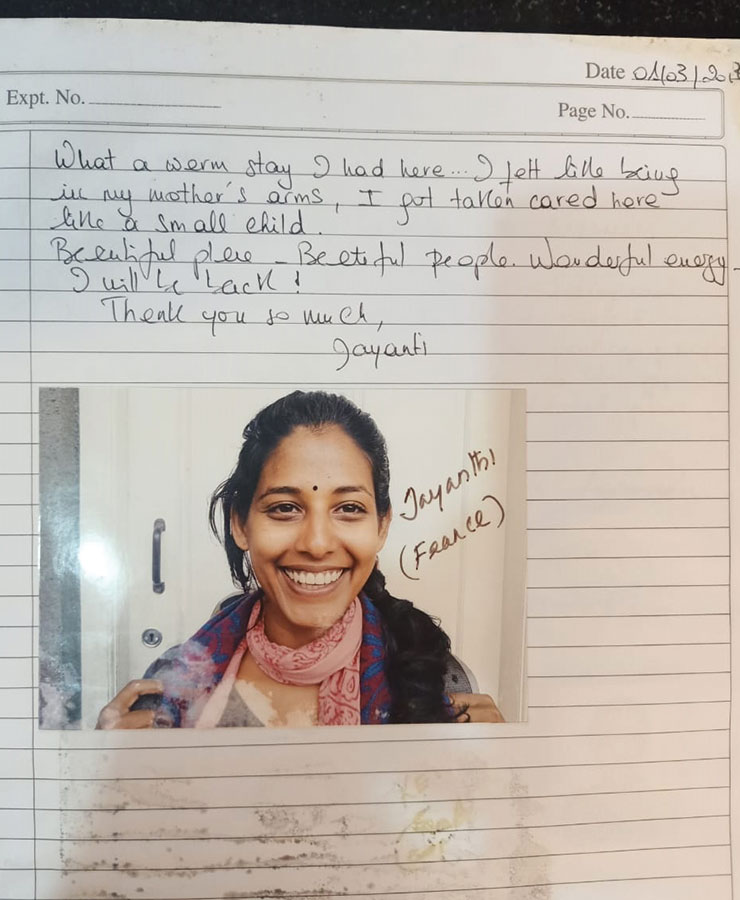 Date 01/03/20
Expt. No.
Page No.
What a warm stay I had here... I felt like being
in my mother's arms, I got taken cared here
like a small child.
Beautiful place - Beautiful people. Wonderful energy -
I will be back !
Thank you so much,
Jayanti
Jayanthi
(France)